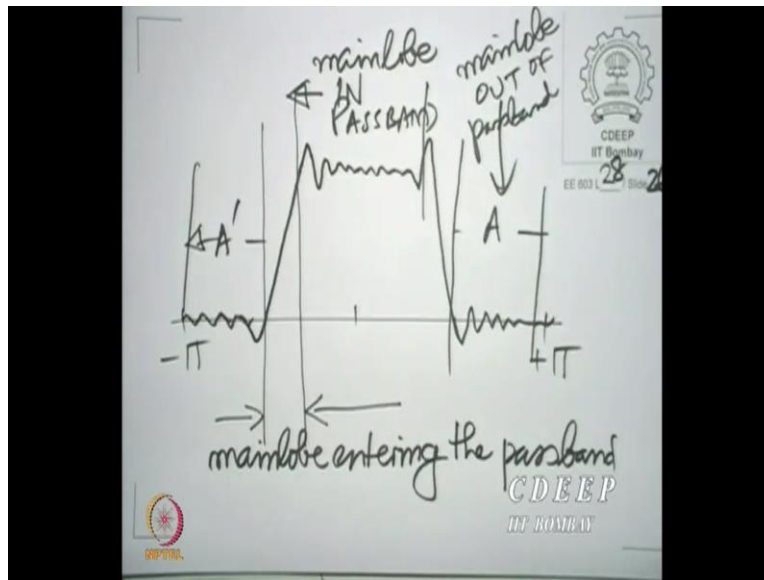 mainlobe
IN
PASSBAND
mainlobe
OUT OF
passband
CDEEP
IIT Bombay
EE 603 L 28 / Slide 26
A'
A
-π
+π
mainlobe entering the passband
CDEEP
IIT BOMBAY
NPTEL